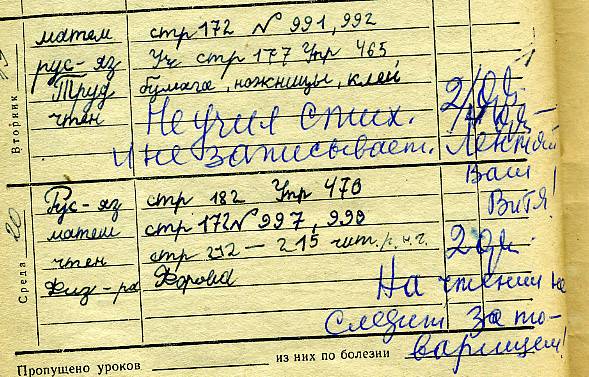 Вторник
матем стр 172 № 991, 992
рус-яз Уч стр 177 Упр 465
Труд бумага, ножницы, клей
чтен Не учил стих. 2/
и не записывает. Лентяй
Ваш
Витя!
Среда 20
Рус-яз стр 182 Упр 470
матем стр 172 № 997, 990
чтен стр 212 — 215 чит. 2
Физ-ра Форма
На чтении не
следит за то-
варищем!
Пропущено уроков из них по болезни